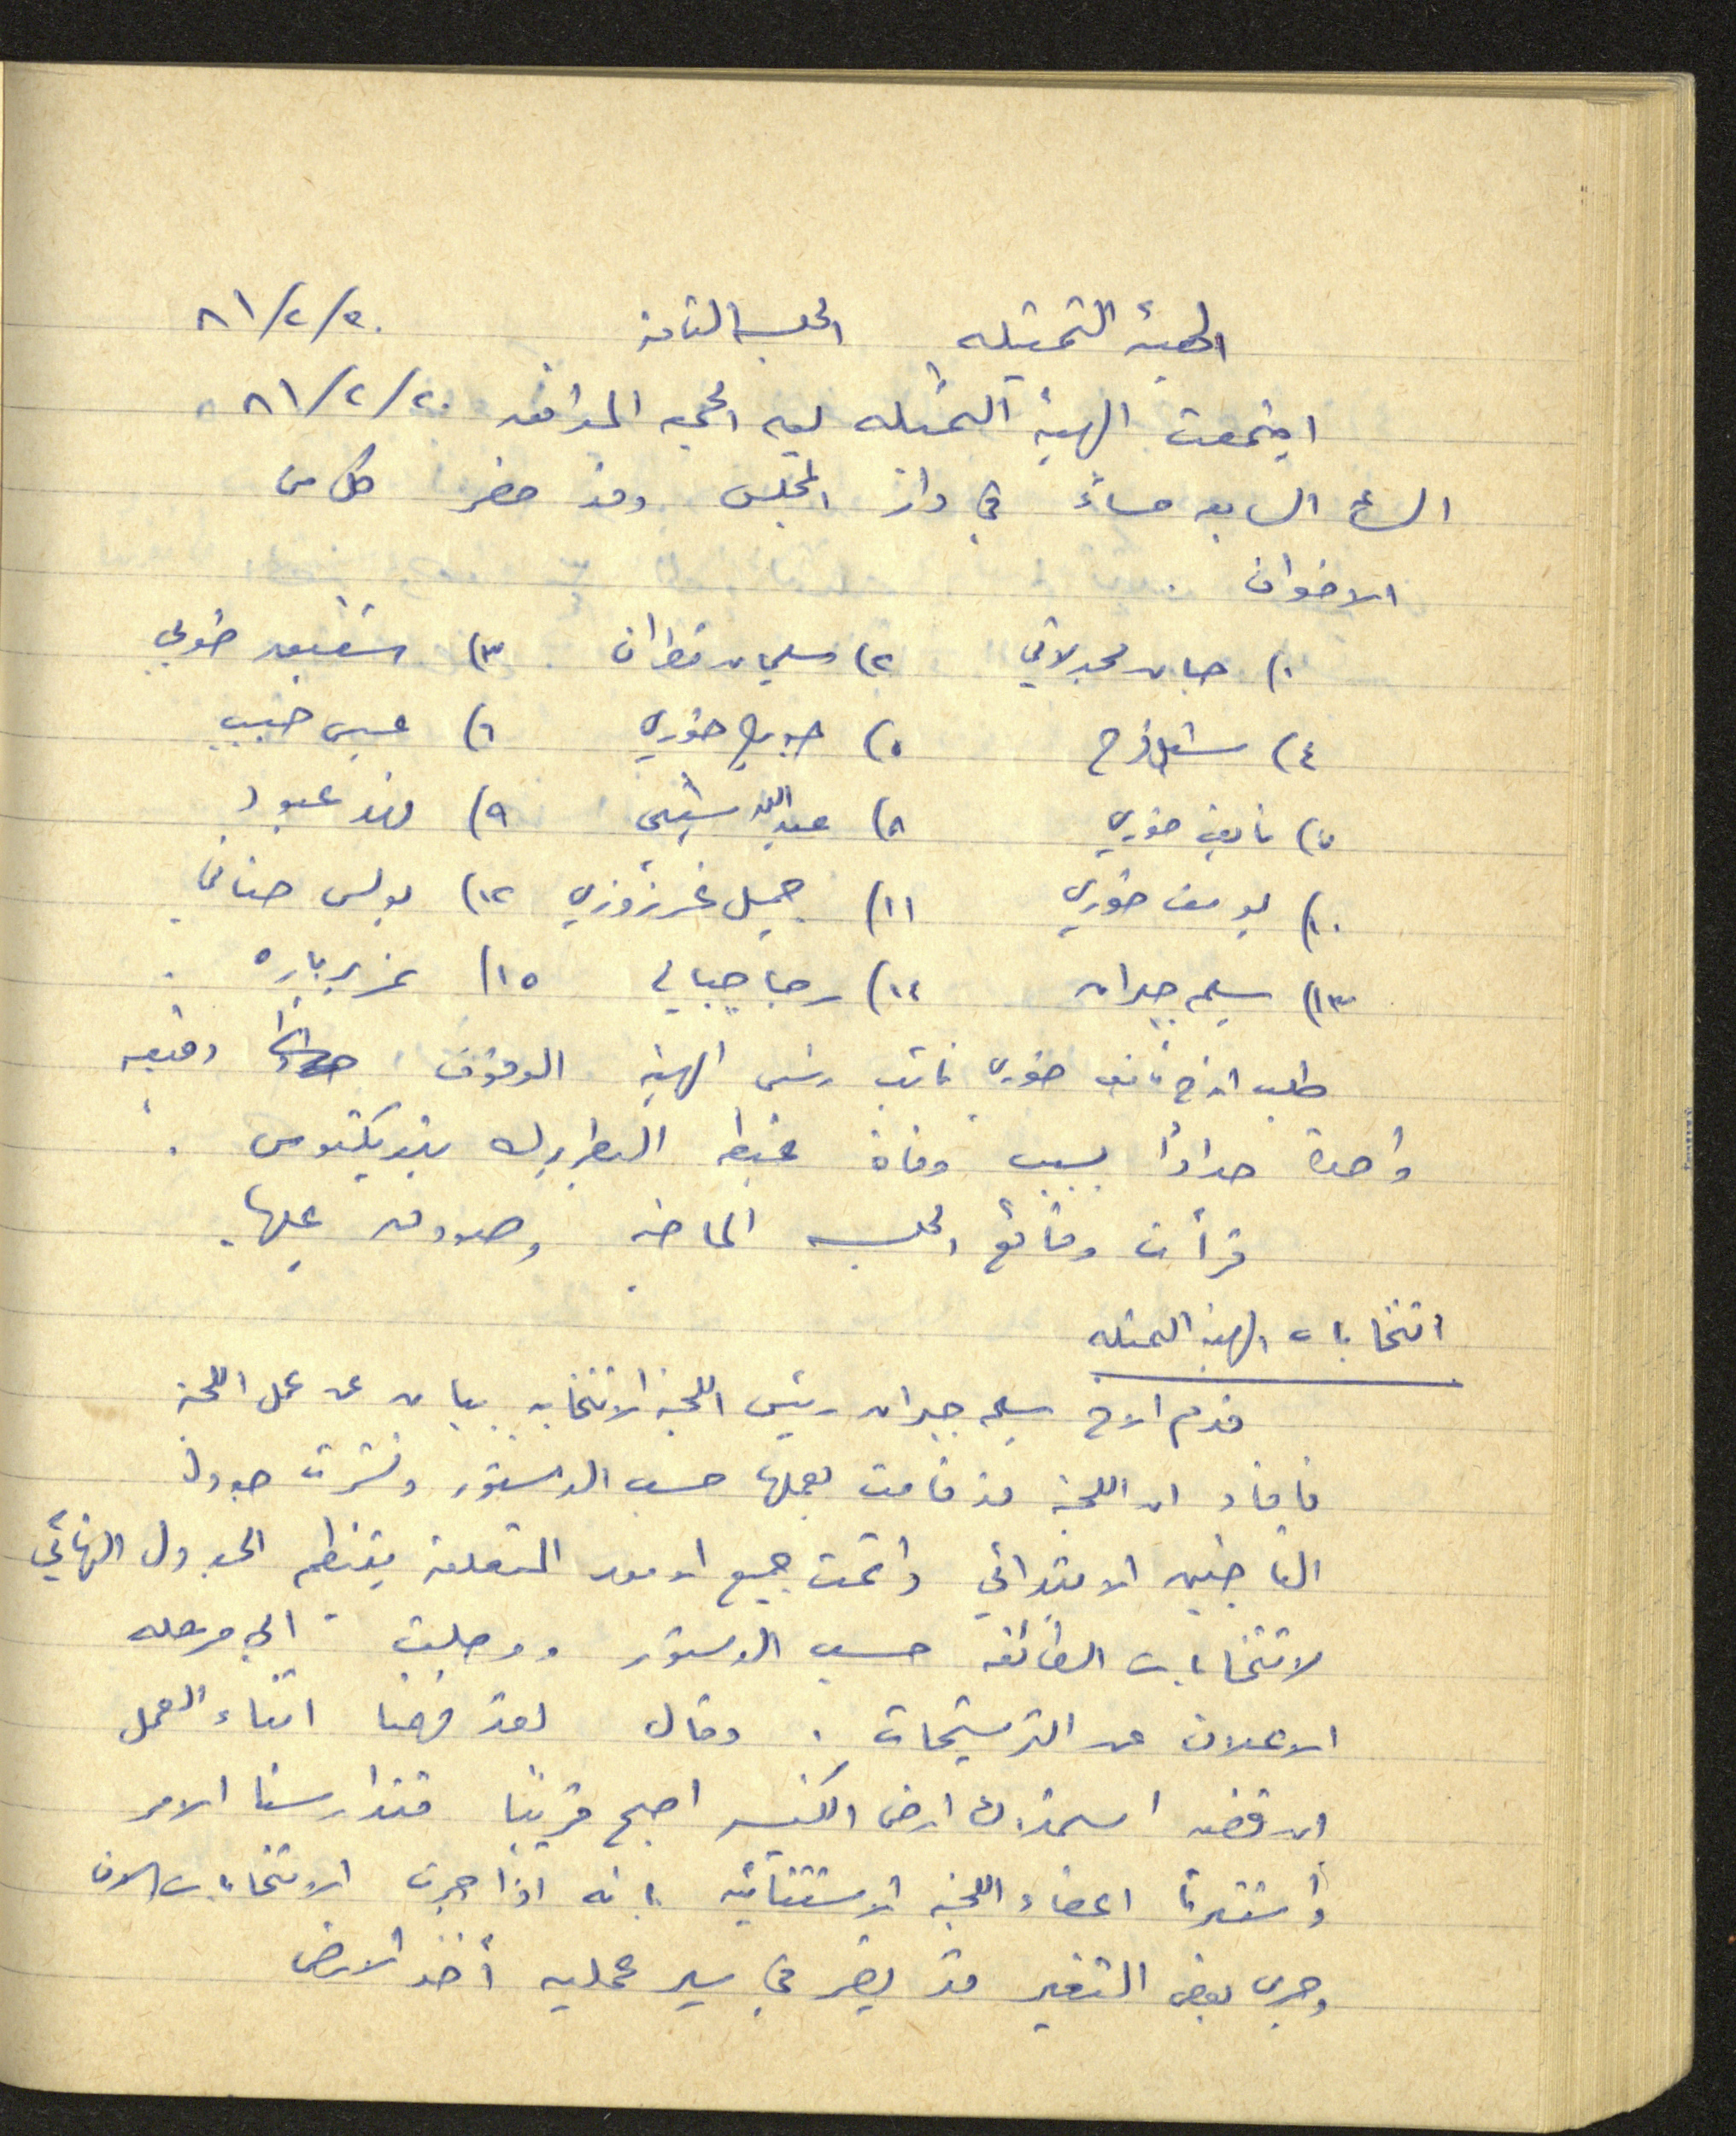 الهيئة التمثيليه الجلسة الثامنة ٢٠/٢/٨١
اجتمعت الهيئة التمثيله يوم الجمعه الموافق ٢٠/٢/٨١
الساعة السابعه مساءً في دار المجلس وقد حضر كل من
الاخوان .
١) حبان مجدلاني ٢) سليمان قطران ٣) شفيق خولي
٤) شبل فرح ٥) جورج خوري ٦) عيسى حبيب
٧) نايف خوري ٨) عبدالله شيتي ٩) فهد عبود
١٠) يوسف خوري ١١) جميل غرزوزي ١٢) بولس حناني
١٣) سليم جبران ١٤) رجا جبالي ١٥) عزيز باره .
طلب الاخ نايف خوري نائب رئيس الهيئة الوقوف دقيقه
واحدة حداداً بسبب وفاة غبطة البطريرك بنديكتوس .
قرأت وقائع الجلسه الماضيه وصودق عليها.
انتخابات الهيئة التمثيله
قدم الاخ سليم جبران رئيس اللجنة الانتخابيه بيان عن عمل اللجنة
فافاد ان اللجنة قد قامت بعملها حسب الدستور ونشرت جدول
الناخبين الابتدائي واتمت جميع الامور المتعلقة بتنظيم الجدول النهائي
لانتخابات الطائفه حسب الدستور ووصلت الى مرحله
الاعلان عن الترشيحات . وقال لقد فهمنا اثناء العمل
ان قضيه ارض الكنيسه اصبح قريباً فتدارسنا الامر
واستشرنا اعضاء اللجنة الاستثنائيه بانه اذا جرت الانتخابات الان
وجرى بعض التغير قد يضر في سير عمليه أخذ الارض